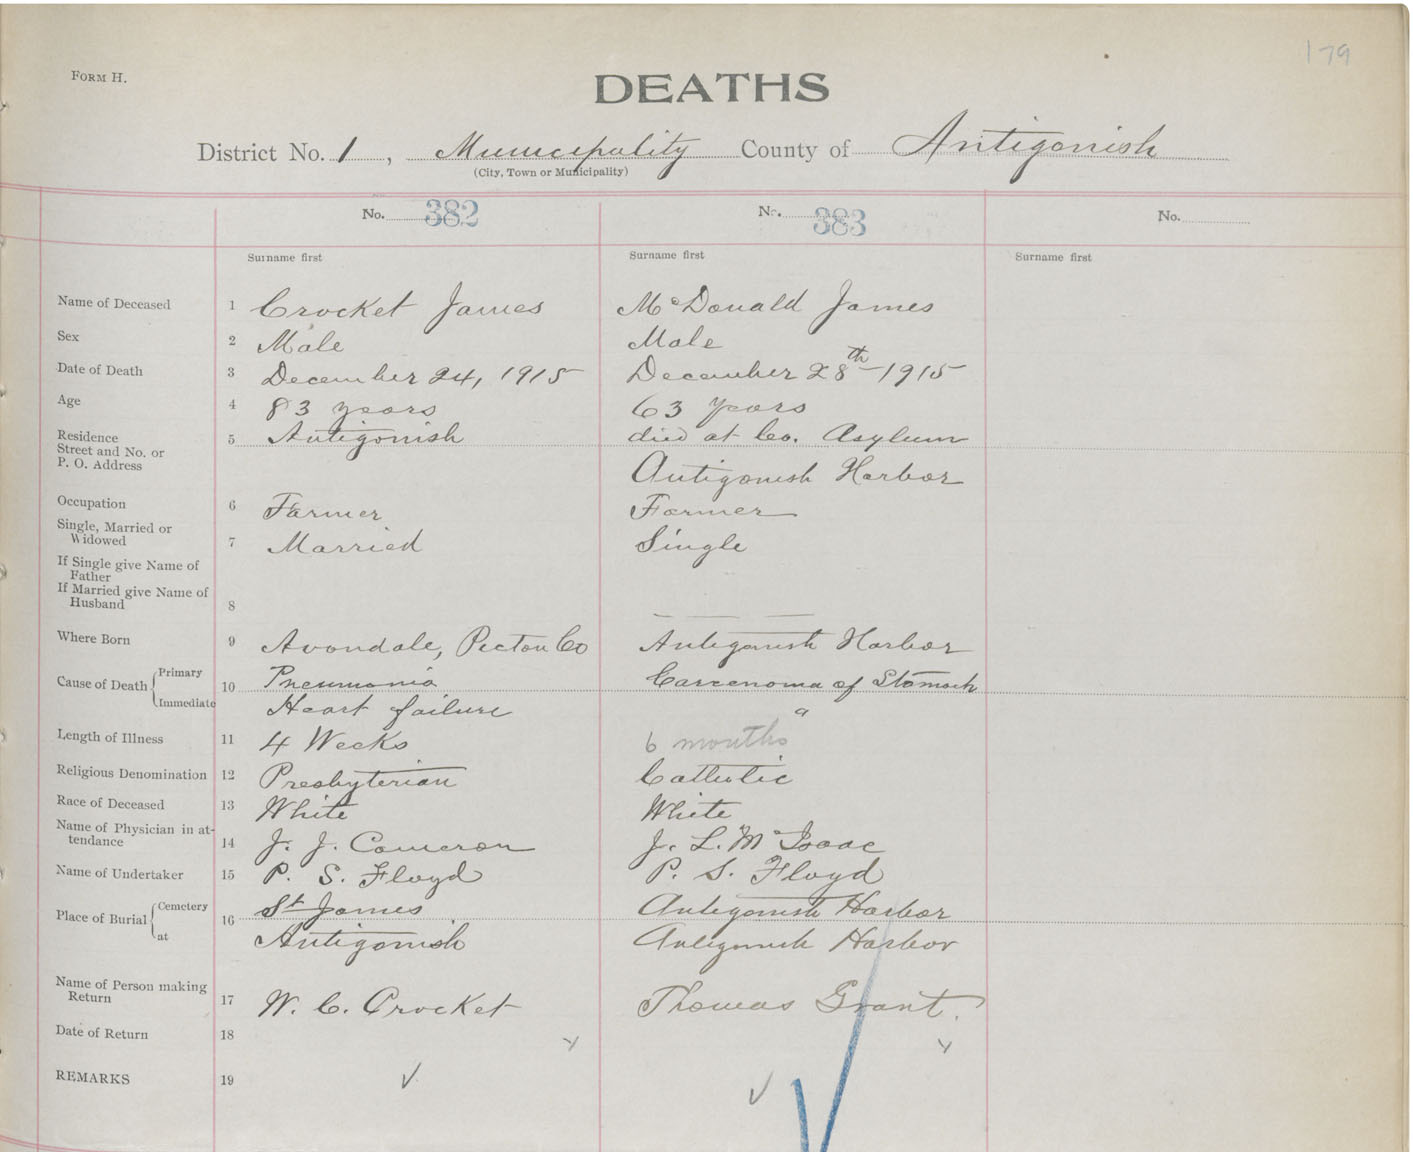 179
FORM H.
DEATHS
District No. 1, Municipality County of Antigonish
(City, Town or Municipality)
No. 382 No. 383 No.
Surname first Surname first Surname first
Name of Deceased 1 Crocket James McDonald James
Sex 2 Male Male
Date of Death 3 December 24, 1915 December 28th 1915
Age 4 83 years 63 years
Residence 5 Antigonish died at Co. Asylum
Street and No. or
P. O. Address Antigonish Harbor
Occupation 6 Farmer Farmer
Single, Married or
Widowed 7 Married Single
If Single give Name of
Father
If Married give Name of
Husband 8
Where Born 9 Avondale, Pictou Co Antigonish Harbor
Cause of Death Primary 10 Pneumonia Carcenoma of Stomach
Immediate Heart failure "
Length of Illness 11 4 Weeks 6 months
Religious Denomination 12 Presbyterian Catholic
Race of Deceased 13 White White
Name of Physician in at-
tendance 14 J. J. Cameron J. L. McIsaac
Name of Undertaker 15 P. S. Floyd P. S. Floyd
Place of Burial Cemetery 16 St James Antigonish Harbor
at Antigonish Antigonish Harbor
Name of Person making
Return 17 W. C. Crocket Thomas Grant.
Date of Return 18
REMARKS 19